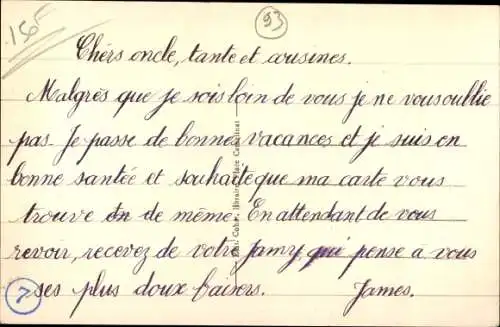 15F
93
Chèrs oncle, tante et cousines.
Malgrès que je sois loin de vous je ne vous oublie
pas. Je passe de bonnes vacances et je suis en
bonne santée et souhaite que ma carte vous
trouve en de même. En attendant de vous
revoir, recevez de votre Jamy qui pense à vous
ses plus doux baisers. James.
7